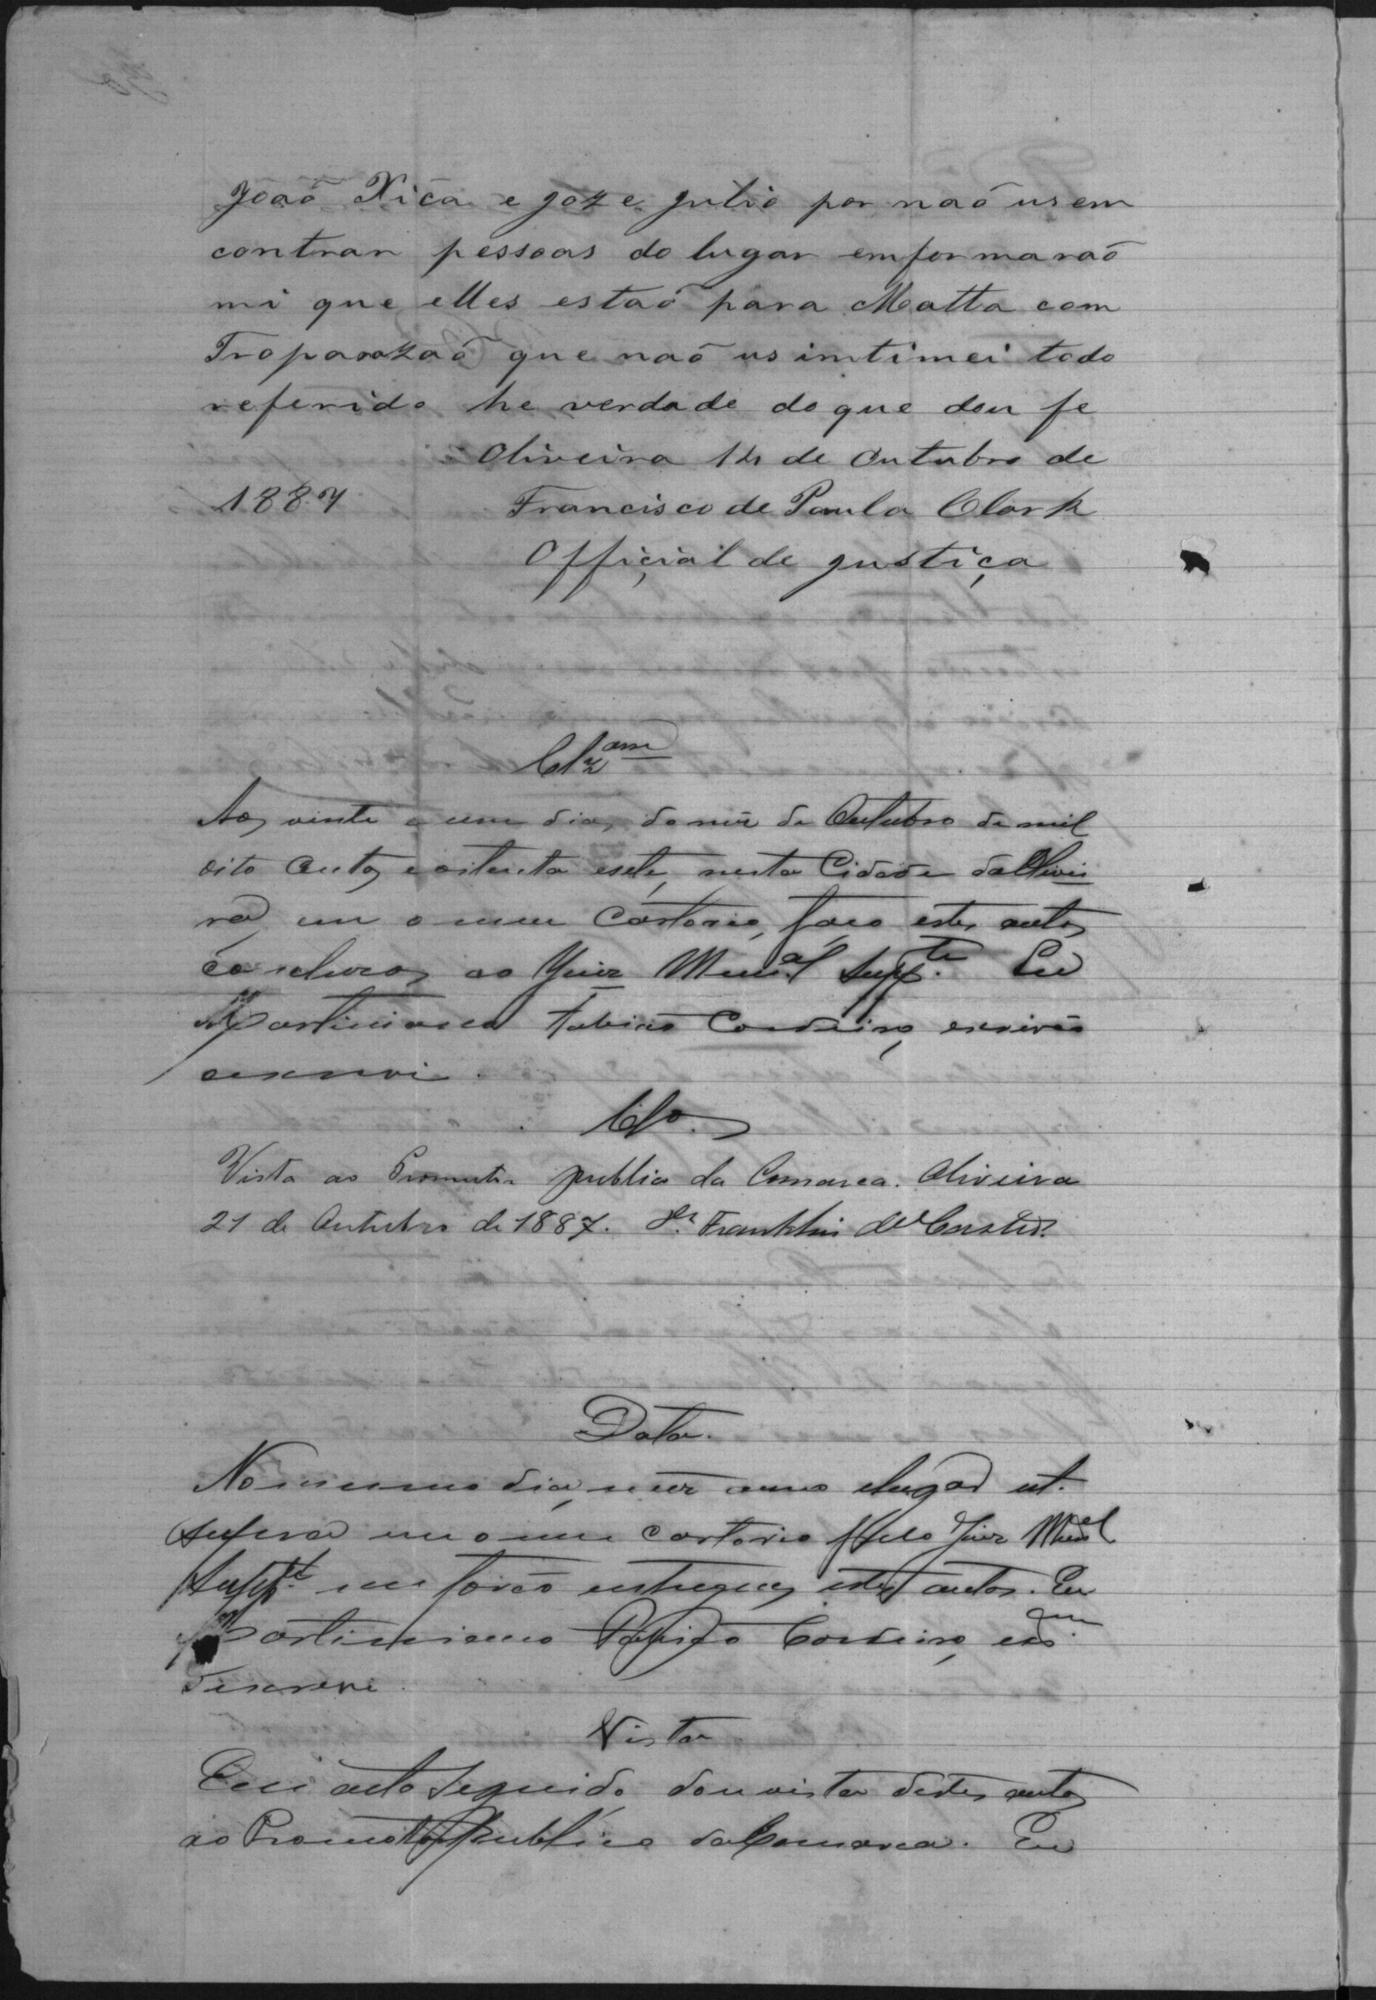 João Xica e joze julio por naõ us em
contrar pessoas do lugar emformaraõ
mi que elles estaõ para Matta com
Tropa razaõ que naõ us imtimei todo
referido he verdade do que dou fe
Oliveira 14 de Outubro de
1887 Francisco de Paula Clark
Offiçial de justiça
Clzam
Aos vinte e um dias do mez de Outubro de mil
oito centos e oitenta e sete, nesta Cidade da Olivei
ra em o meu Cartorio, faço estes autos
conclusos ao Juiz Mun.al Supp.te Eu
Martiniano Fabião Cordeiro, escrivão
escrevi.
Clo.
Vista ao Promotor publico da Comarca. Oliveira
21 de Outubro de 1887. Franklin de Castro.
Data.
No mesmo dia, mez anno e lugar ut.
supra em o meu cartorio pelo Juiz Mun.al
Supp.te me forão entregues estes autos. Eu
Martiniano Fabião Cordeiro, escam
escrevi.
Vista
Em acto seguido dou vista destes autos
ao Promotor Publico da Comarca. Eu